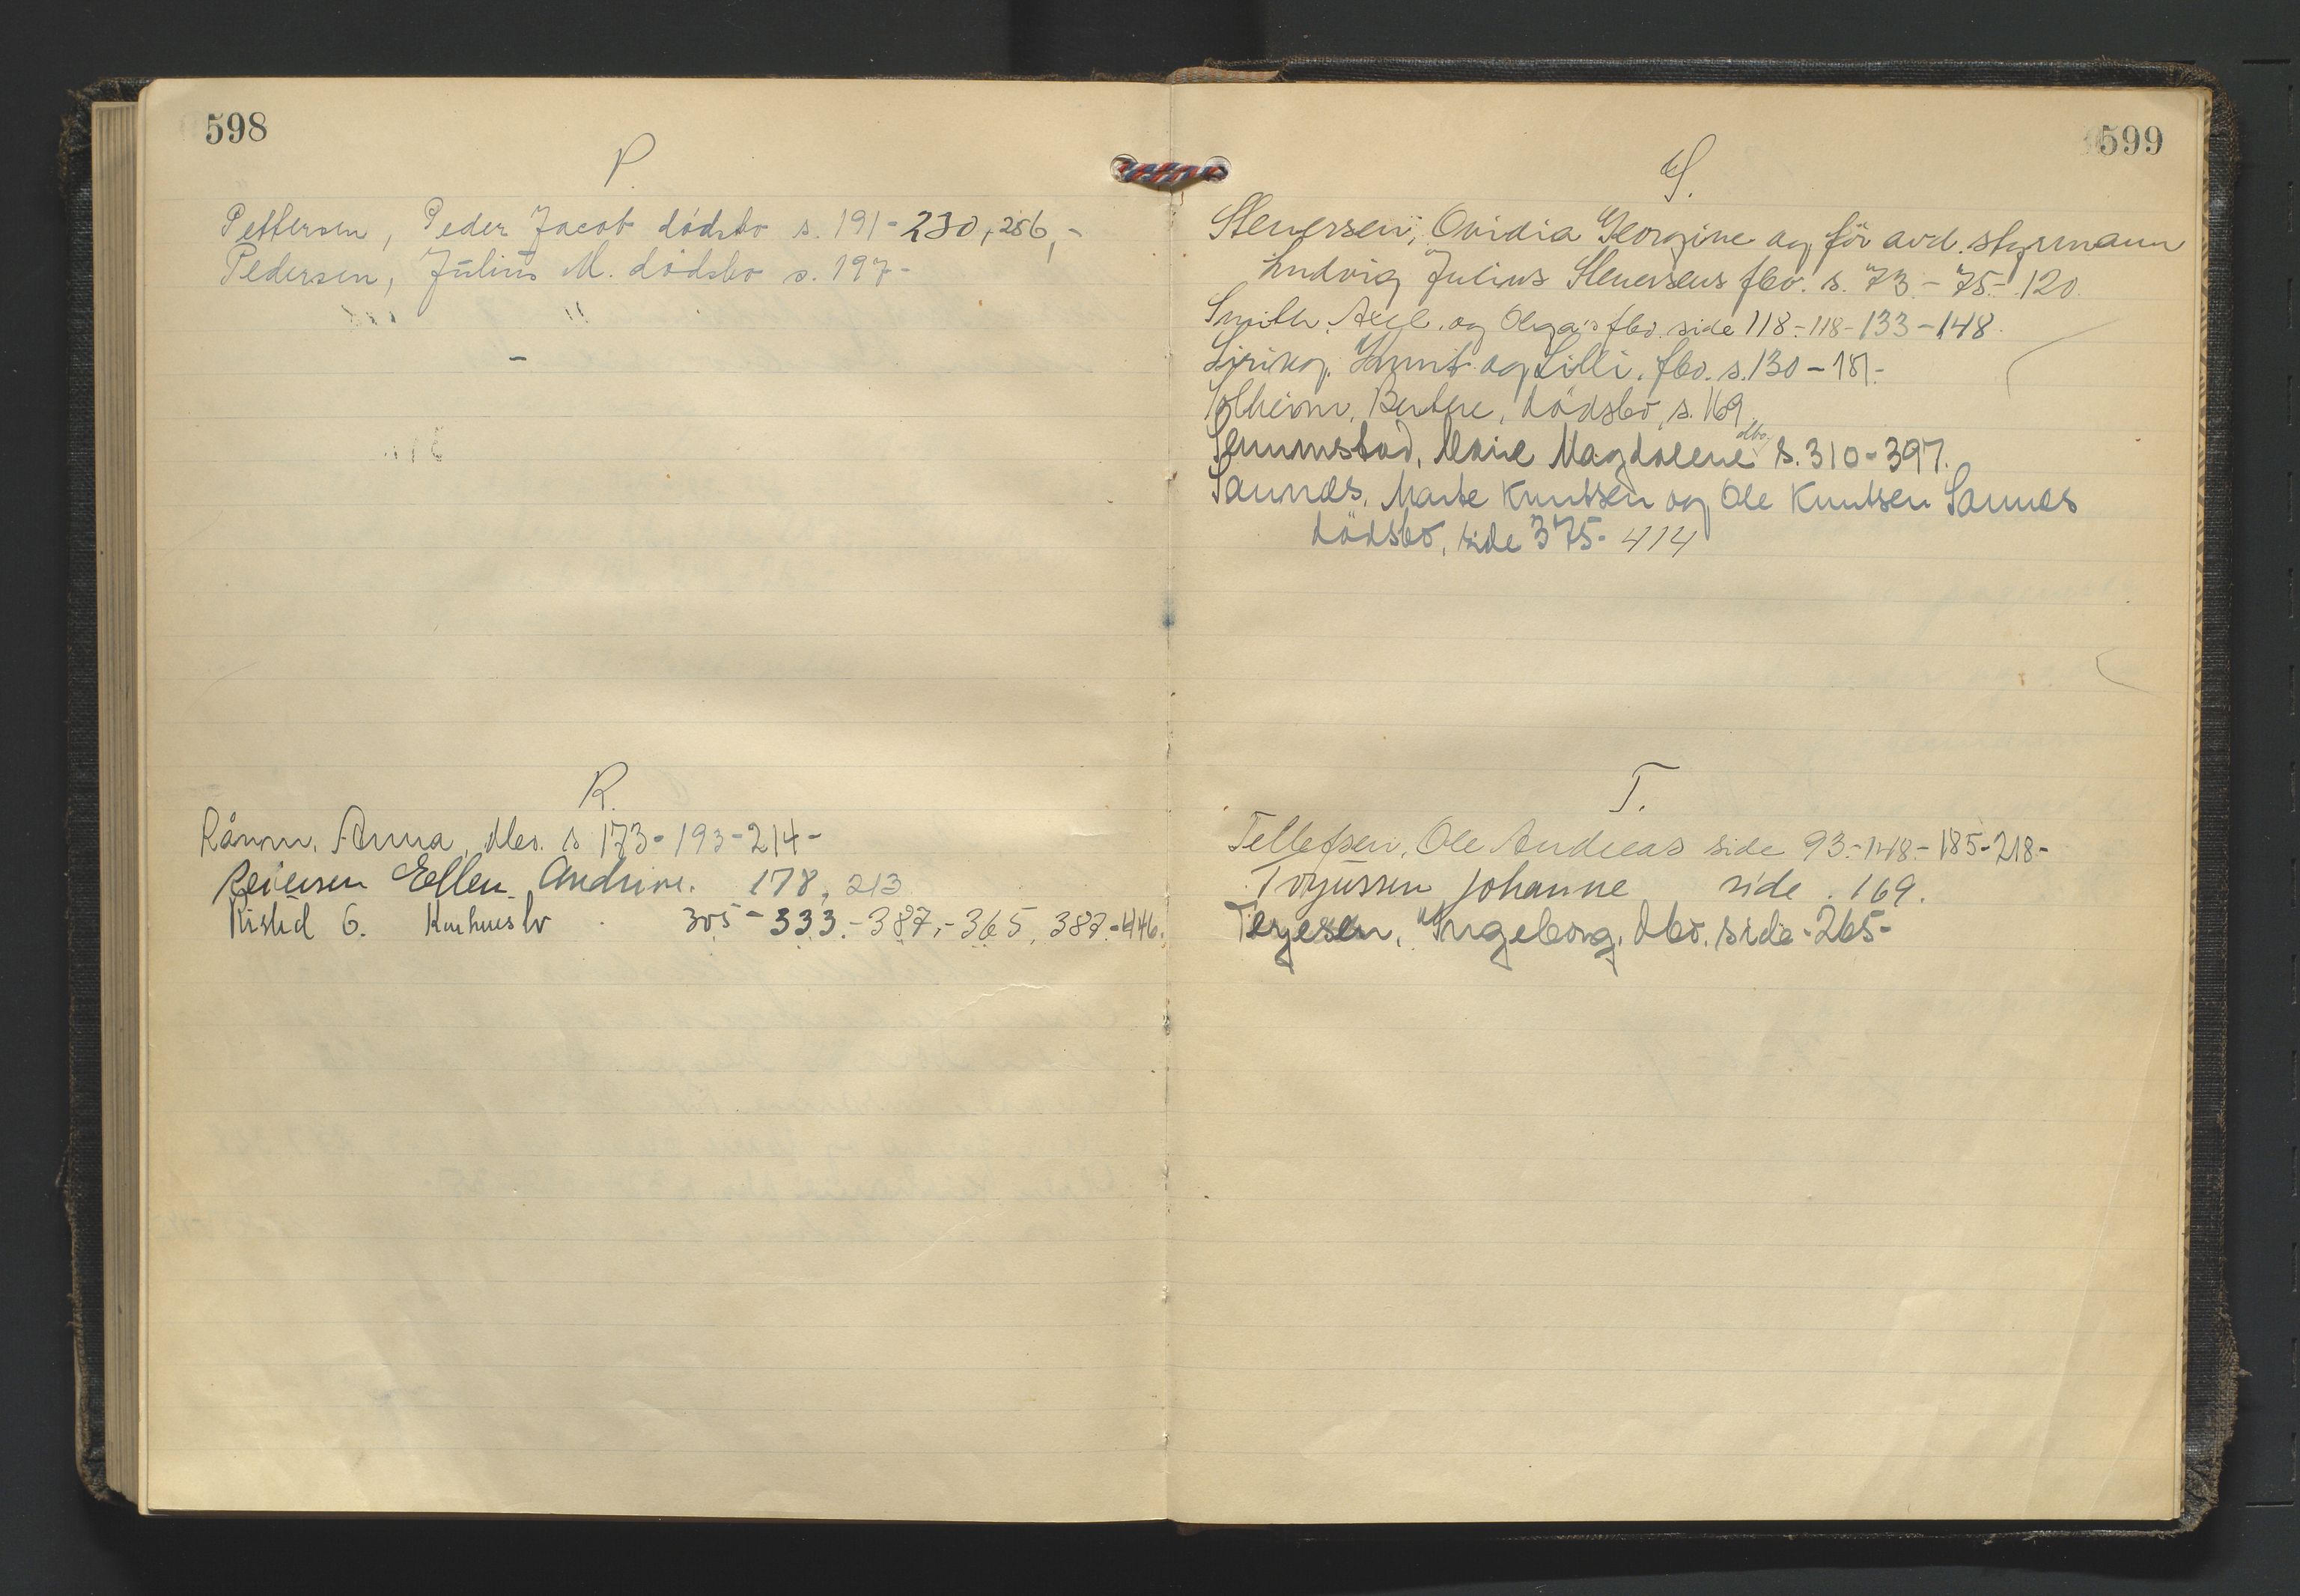 598
P.
Pettersen, Peder Jacob dödsbo s. 191-230,-256,-
Pedersen, Julius M. dödsbo s. 197-
R.
Råmm, Anna, dbo. s 173-193-214-
Reiersen Ellen Andrine. 178, 213
Ristid G. Konkursbo 305-333.-387,-365, 387.-446.
599
S.
Stenersen, Ovidia Georgine og för avd. styrmann
Ludvig Julius Stenersens fbo. s. 73-75-120.
Smith, Axel. og Olga's fbo. side 118-118-133-148.
og Lilli. fbo. s. 130-181-
Solheim, Berthe, dödsbo, s. 169.
Marie Magdalene dbo, s. 310-397.
Saunes, Marte Knutsen og Ole Knutsen Saunes
dödsbo, side 375-414
T.
Tellefsen, Ole Andreas side 93-148-185-218-
Torjussen Johanne side. 169.
Terjesen, Ingeborg, dbo. side-265-